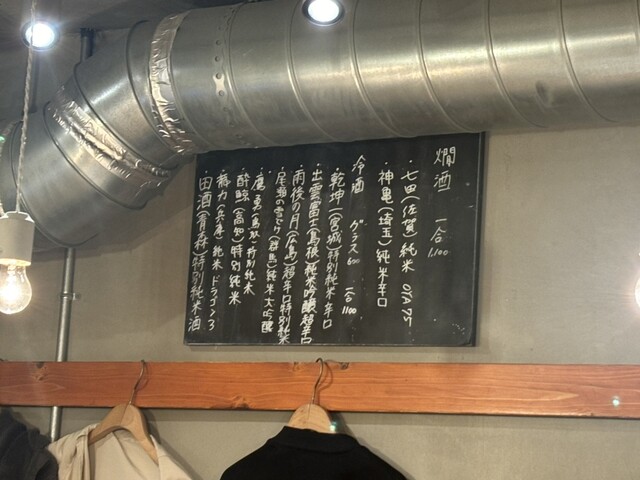 燗酒 一合 1,100
・七田(佐賀)純米
・神亀(埼玉)純米辛口
冷酒 グラス600 一合1100
・乾坤一(宮城)特別純米辛口
・出雲富士(島根)純米吟醸超辛口
・雨後の月(広島)超辛口特別純米
・尾瀬の雪どけ(群馬)純米大吟醸
・鷹勇(鳥取)特別純米
・酔鯨(高知)特別純米
(兵庫)純米ドラゴン
・田酒(青森)特別純米酒